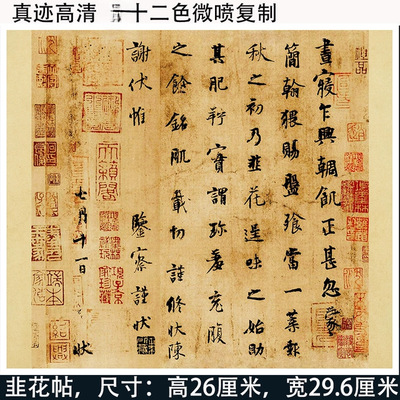 真迹高清 十二色微喷复制
晝寢乍興輖飢正甚忽蒙
簡翰猥賜盤飧當一葉報
秋之初乃韭花逞味之始助
其肥羜實謂珍羞充腹
之餘銘肌載切謹修狀陳
謝伏惟 鑒察謹狀
七月十一日 狀
天籟閣
韭花帖，尺寸：高26厘米，宽29.6厘米